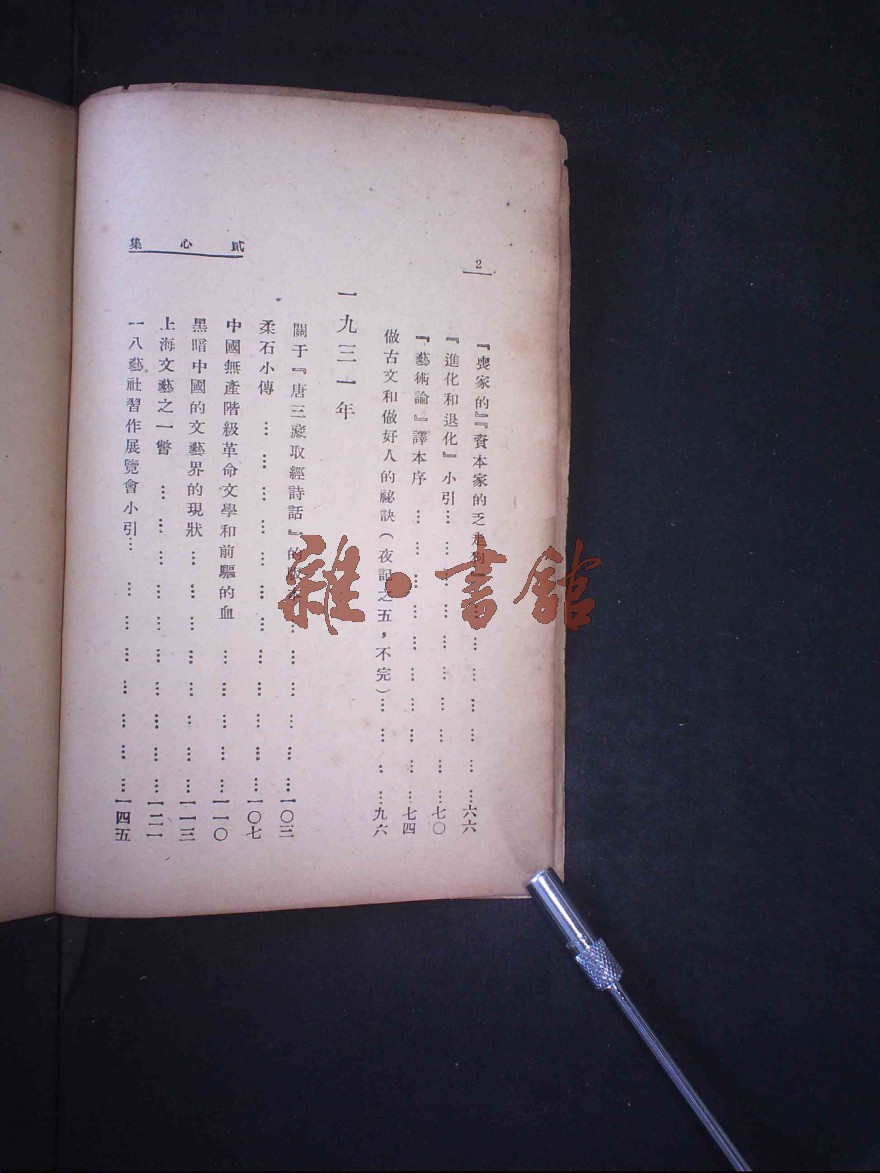 貳心集
2
『喪家的』『資本家的乏走狗……六六
『進化和退化』小引……七〇
『藝術論』譯本序……七四
做古文和做好人的祕訣(夜記之五，不完)……九六
一九三一年
關于『唐三藏取經詩話』的……一〇三
柔石小傳……一〇七
中國無產階級革命文學和前驅的血……一一〇
黑暗中國的文藝界的現狀……一一三
上海文藝之一瞥……一二一
一八藝社習作展覽會小引……一四五
雜·書館